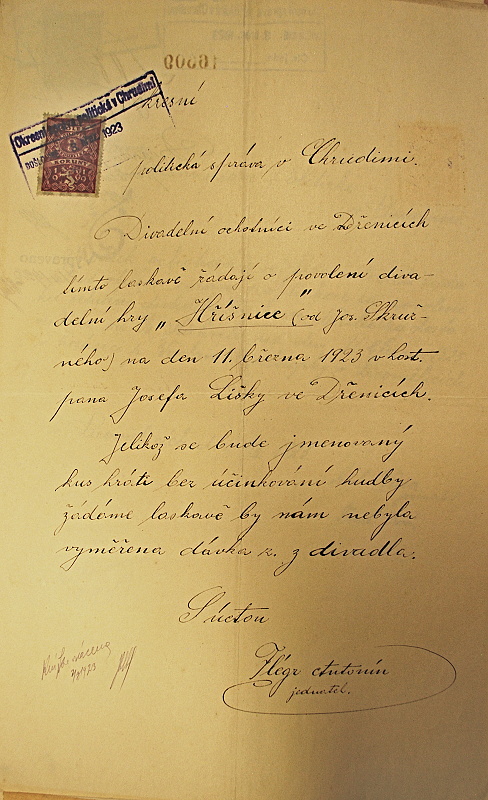 16909
Okresní politická v Chrudimi
1923
kresní
politická správa v Chrudimi.
Divadelní ochotníci ve Dřenicích
tímto laskavě žádají o povolení diva-
delní hry „Hříšnice" (od Jos. Skruž-
ného) na den 11. března 1923 v host.
pana Josefa Lišky ve Dřenicích.
Jelikož se bude jmenovaný
kus hráti bez účinkování hudby
žádáme laskavě by nám nebyla
vyměřena dávka z. z divadla.
S úctou
Flégr Antonín
jednatel.